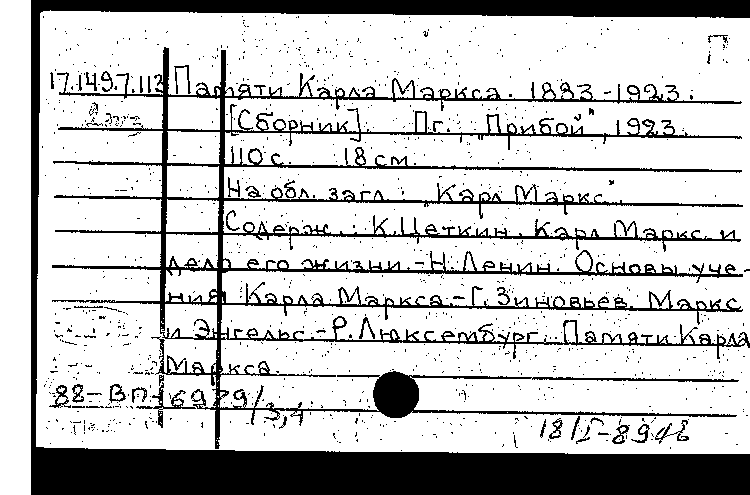 П
17.149.7.113 Памяти Карла Маркса. 1883-1923.
2 экз
[Сборник]. Пг., „Прибой", 1923.
110 с. 18 см.
На обл. загл.: „Карл Маркс".
Содерж.: К.Цеткин. Карл Маркс и
дело его жизни.-Н.Ленин. Основы уче-
ния Карла Маркса.-Г. Зиновьев. Маркс
и Энгельс.-Р.Люксембург. Памяти Карла
Маркса.
88-ВП-6979/3,4
18/I-8948